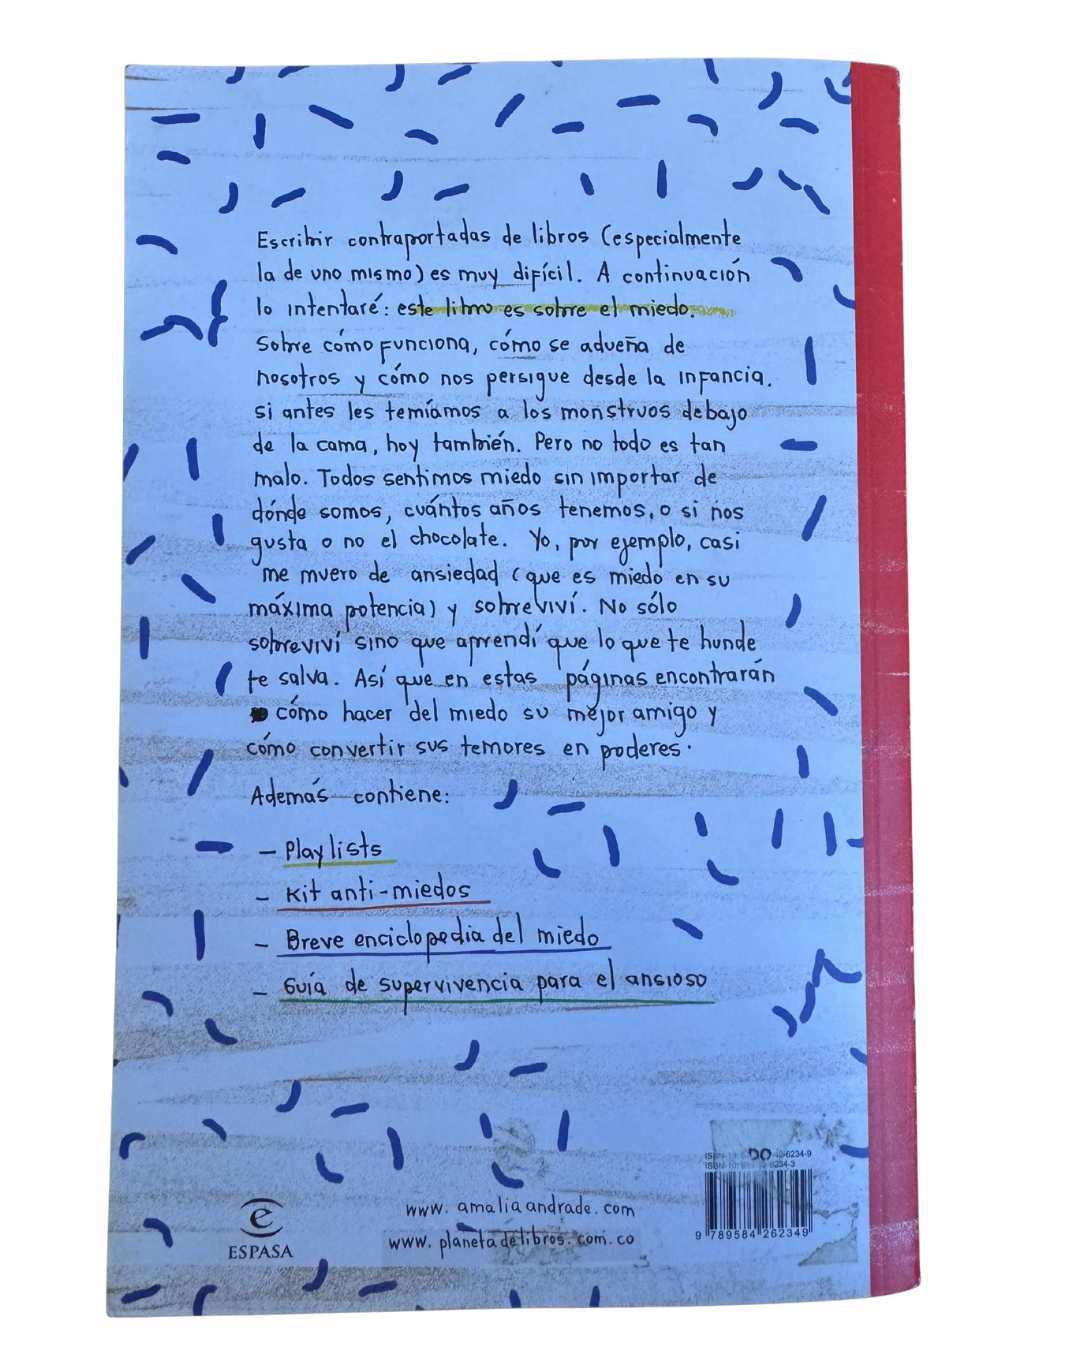 Escribir contraportadas de libros (especialmente
la de uno mismo) es muy difícil. A continuación
lo intentaré: este libro es sobre el miedo.
Sobre cómo funciona, cómo se adueña de
nosotros y cómo nos persigue desde la infancia.
Si antes les temíamos a los monstruos debajo
de la cama, hoy también. Pero no todo es tan
malo. Todos sentimos miedo sin importar de
dónde somos, cuántos años tenemos, o si nos
gusta o no el chocolate. Yo, por ejemplo, casi
me muero de ansiedad (que es miedo en su
máxima potencia) y sobreviví. No sólo
sobreviví sino que aprendí que lo que te hunde
te salva. Así que en estas páginas encontrarán
cómo hacer del miedo su mejor amigo y
cómo convertir sus temores en poderes.
Además contiene:
– Playlists
– Kit anti-miedos
– Breve enciclopedia del miedo
– Guía de supervivencia para el ansioso
e
ESPASA
www.amaliaandrade.com
www.planetadelibros.com.co
6234-9
9 789584 262349